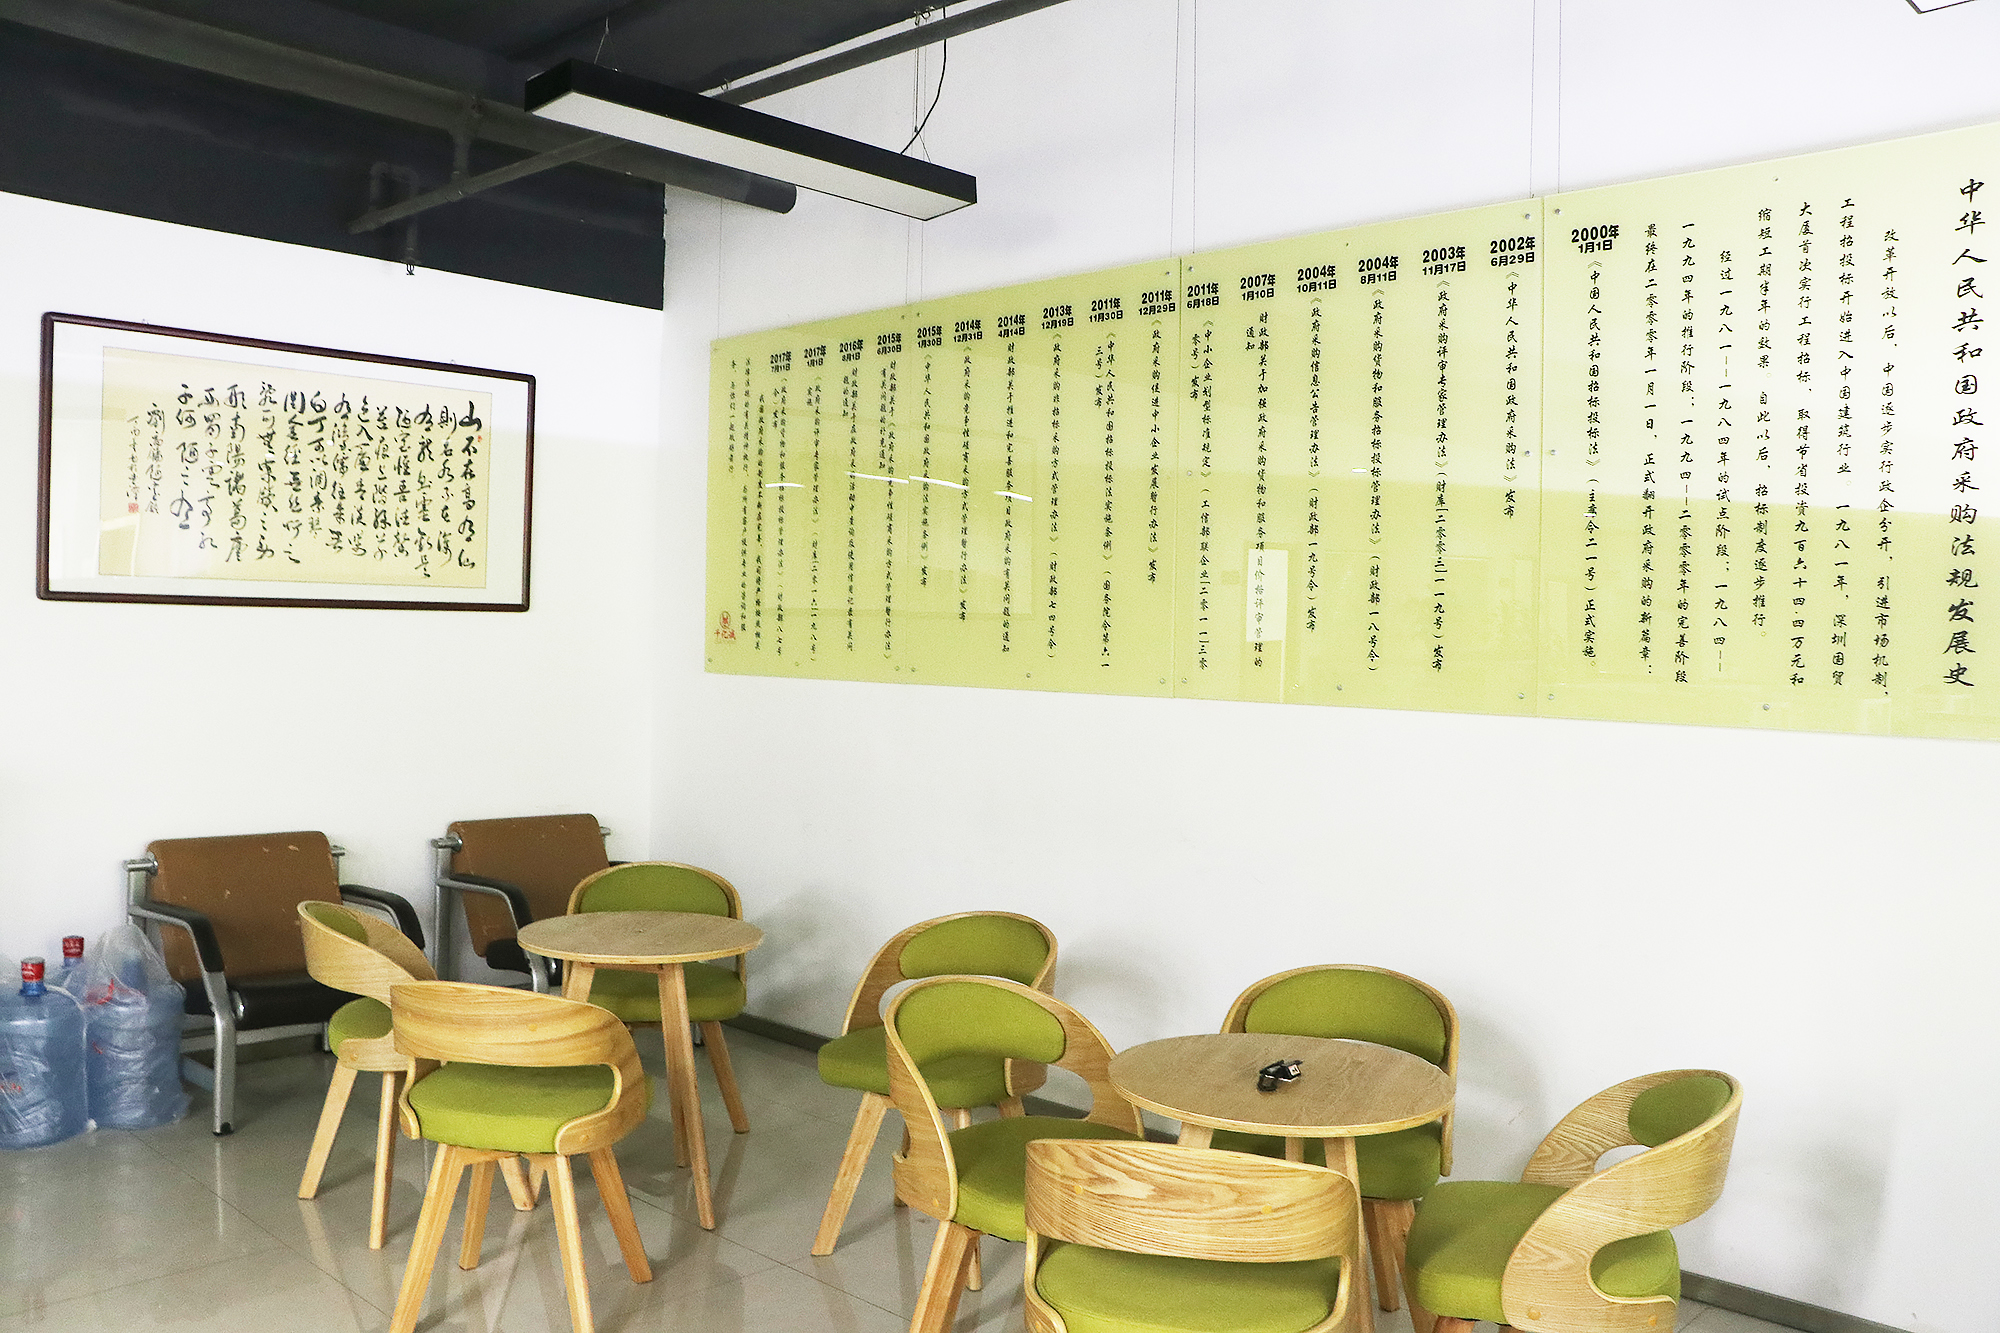 中华人民共和国政府采购法规发展史
改革开放以后，中国逐步实行政企分开，引进市场机制，
工程招投标开始进入中国建筑行业。一九八一年，深圳国贸
大厦首次实行工程招标，取得节省投资九百六十四.四万元和
缩短工期半年的效果。自此以后，招标制度逐步推行。
经过一九八一——一九八四年的试点阶段；一九八四—
一九九四年的推行阶段；一九九四—二零零零年的完善阶段
最终在二零零零年一月一日，正式翻开政府采购的新篇章：
2000年
1月1日
《中国人民共和国招标投标法》（主席令二一号）正式实施。
2002年
6月29日
《中华人民共和国政府采购法》发布
2003年
11月17日
《政府采购评审专家管理办法》（财库[二零零三]一一九号）发布
2004年
8月11日
《政府采购货物和服务招标投标管理办法》（财政部一八号令）
2004年
10月11日
《政府采购信息公告管理办法》（财政部一九号令）发布
2007年
1月10日
财政部关于加强政府采购货物和服务项目价格评审管理的
通知
2011年
6月18日
《中小企业划型标准规定》（工信部联企业[二零一一]三零
零号）发布
2011年
12月29日
《政府采购促进中小企业发展暂行办法》发布
2011年
11月30日
《中华人民共和国招标投标法实施条例》（国务院令第六一
三号）发布
2013年
12月19日
《政府采购非招标采购方式管理办法》（财政部七四号令）
2014年
4月14日
财政部关于推进和完善服务项目政府采购有关问题的通知
2014年
12月31日
《政府采购竞争性磋商采购方式管理暂行办法》发布
2015年
1月30日
《中华人民共和国政府采购法实施条例》发布
2015年
6月30日
财政部关于《政府采购竞争性磋商采购方式管理暂行办法》
有关问题的补充通知
2016年
8月1日
财政部关于在政府采购活动中查询及使用信用记录有关问
题的通知
2017年
1月1日
《政府采购评审专家管理办法》（财库[二零一六]一九八号）
实施
2017年
7月11日
《政府采购货物和服务招标投标管理办法》（财政部八七号
令）发布
我国政府采购的制度不断在完善，我司将严格按照相关
法律法规的有关精神执行，
山不在高有仙
則名水不在深
有龍則靈斯是
陋室惟吾德馨
苔痕上階綠草
色入簾青談笑
有鴻儒往來無
白丁可以調素琴
閱金經無絲竹之
亂耳無案牘之勞
形南陽諸葛廬
西蜀子雲亭孔
子何陋之有
劉禹錫陋室銘